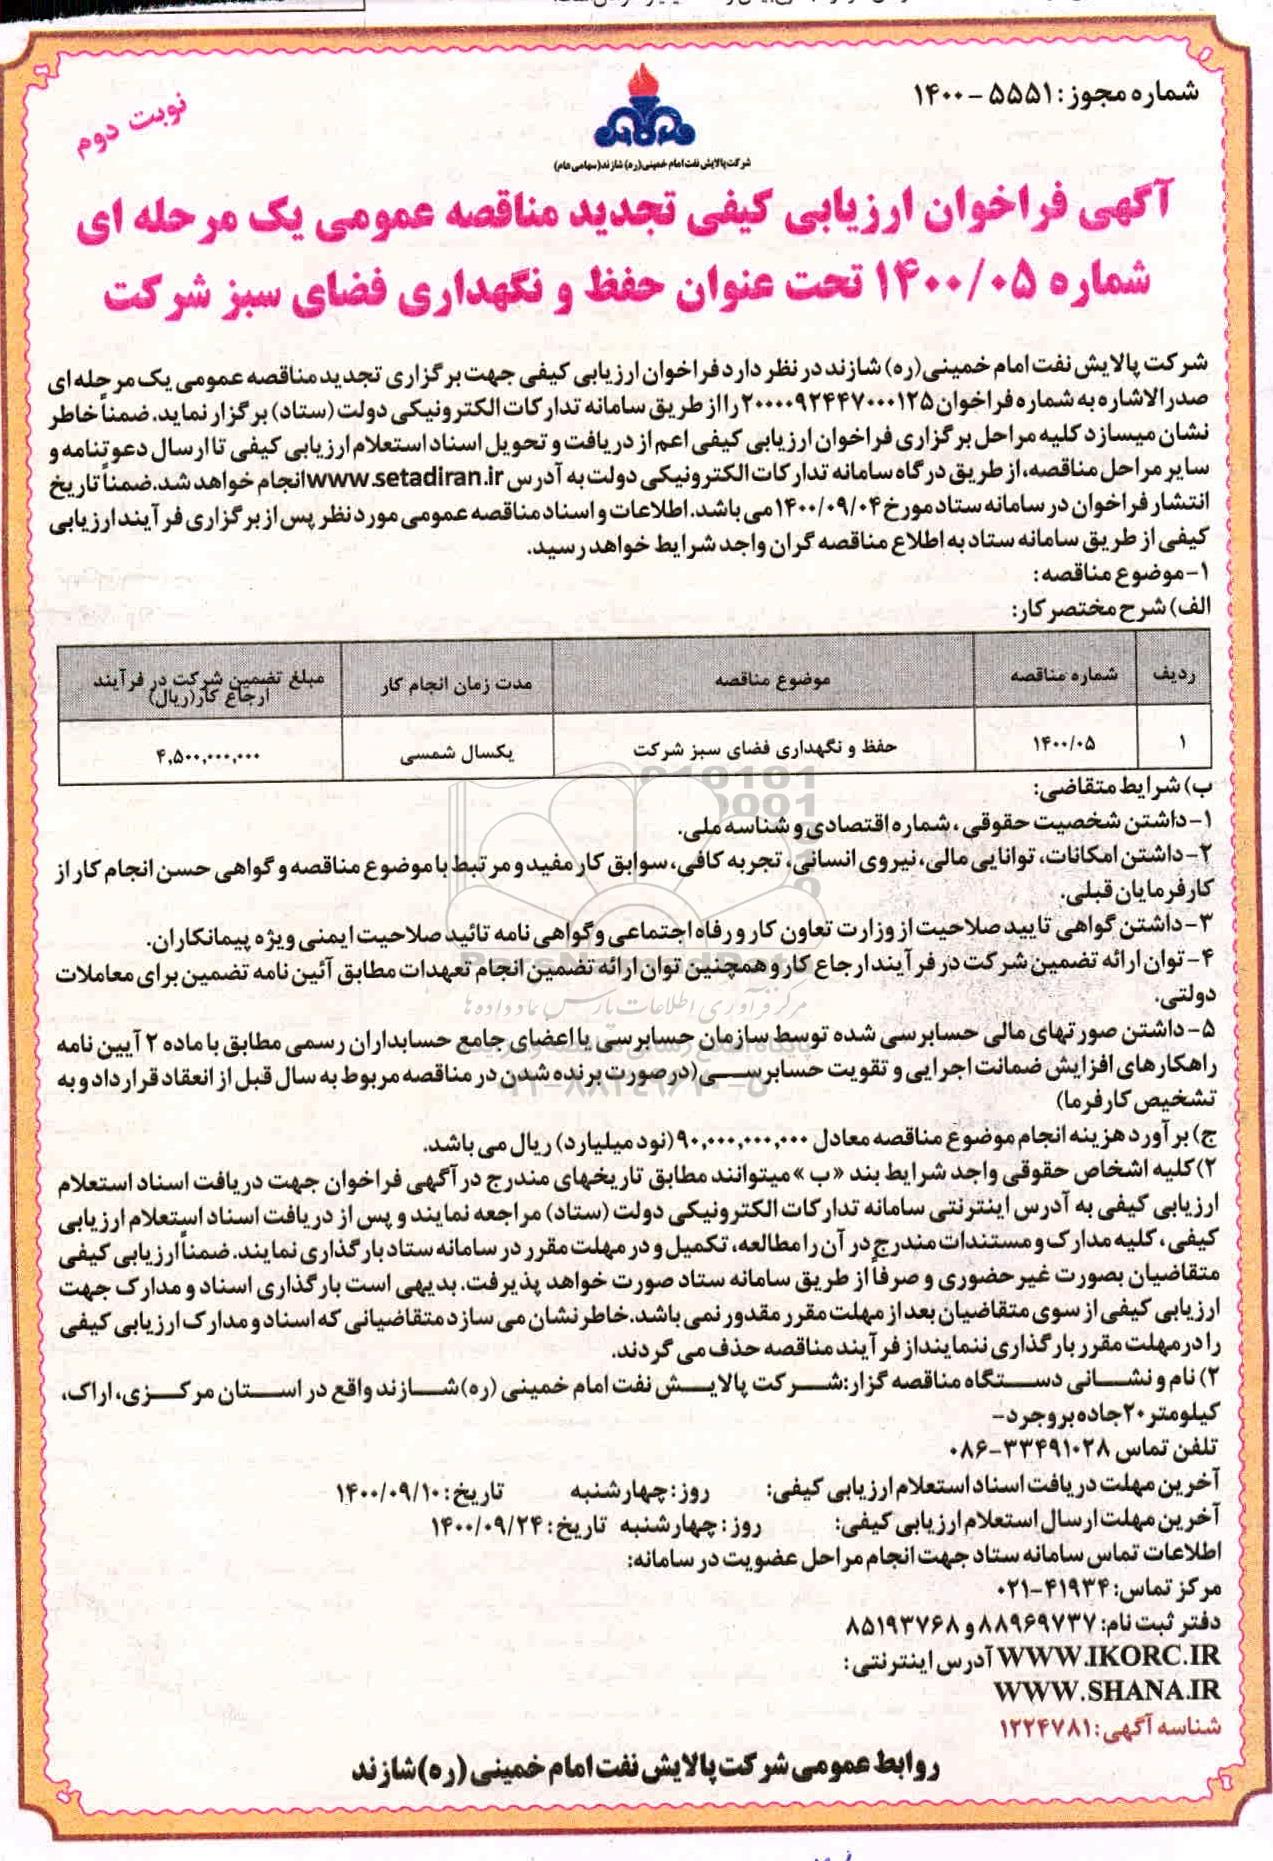 شماره مجوز: ۵۵۵۱ - ۱۴۰۰
نوبت دوم
شرکت پالایش نفت امام خمینی(ره) شازند(سهامی عام)
آگهی فراخوان ارزیابی کیفی تجدید مناقصه عمومی یک مرحله ای
شماره ۱۴۰۰/۰۵ تحت عنوان حفظ و نگهداری فضای سبز شرکت
شرکت پالایش نفت امام خمینی(ره) شازند در نظر دارد فراخوان ارزیابی کیفی جهت برگزاری تجدید مناقصه عمومی یک مرحله ای
صدرالاشاره به شماره فراخوان ۲۰۰۰۰۹۲۴۴۷۰۰۰۱۲۵ را از طریق سامانه تدارکات الکترونیکی دولت (ستاد) برگزار نماید. ضمناً خاطر
نشان میسازد کلیه مراحل برگزاری فراخوان ارزیابی کیفی اعم از دریافت و تحویل اسناد استعلام ارزیابی کیفی تا ارسال دعوتنامه و
سایر مراحل مناقصه، از طریق درگاه سامانه تدارکات الکترونیکی دولت به آدرس www.setadiran.ir انجام خواهد شد. ضمناً تاریخ
انتشار فراخوان در سامانه ستاد مورخ ۱۴۰۰/۰۹/۰۴ می باشد. اطلاعات و اسناد مناقصه عمومی مورد نظر پس از برگزاری فرآیند ارزیابی
کیفی از طریق سامانه ستاد به اطلاع مناقصه گران واجد شرایط خواهد رسید.
۱-موضوع مناقصه:
الف) شرح مختصر کار:
ردیف شماره مناقصه موضوع مناقصه مدت زمان انجام کار مبلغ تضمین شرکت در فرآیند ارجاع کار(ریال)
۱ ۱۴۰۰/۰۵ حفظ و نگهداری فضای سبز شرکت یکسال شمسی ۴,۵۰۰,۰۰۰,۰۰۰
ب) شرایط متقاضی:
۱-داشتن شخصیت حقوقی، شماره اقتصادی و شناسه ملی.
۲-داشتن امکانات، توانایی مالی، نیروی انسانی، تجربه کافی، سوابق کار مفید و مرتبط با موضوع مناقصه و گواهی حسن انجام کار از
کارفرمایان قبلی.
۳-داشتن گواهی تایید صلاحیت از وزارت تعاون کار و رفاه اجتماعی و گواهی نامه تائید صلاحیت ایمنی ویژه پیمانکاران.
۴- توان ارائه تضمین شرکت در فرآیند ارجاع کار و همچنین توان ارائه تضمین انجام تعهدات مطابق آئین نامه تضمین برای معاملات
دولتی.
۵- داشتن صورتهای مالی حسابرسی شده توسط سازمان حسابرسی یا اعضای جامع حسابداران رسمی مطابق با ماده ۲ آیین نامه
راهکارهای افزایش ضمانت اجرایی و تقویت حسابرسی(درصورت برنده شدن در مناقصه مربوط به سال قبل از انعقاد قرارداد و به
تشخیص کارفرما)
ج) برآورد هزینه انجام موضوع مناقصه معادل ۹۰,۰۰۰,۰۰۰,۰۰۰ (نود میلیارد) ریال می باشد.
۲)کلیه اشخاص حقوقی واجد شرایط بند «ب» میتوانند مطابق تاریخهای مندرج در آگهی فراخوان جهت دریافت اسناد استعلام
ارزیابی کیفی به آدرس اینترنتی سامانه تدارکات الکترونیکی دولت (ستاد) مراجعه نمایند و پس از دریافت اسناد استعلام ارزیابی
کیفی، کلیه مدارک و مستندات مندرج در آن را مطالعه، تکمیل و در مهلت مقرر در سامانه ستاد بارگذاری نمایند. ضمناً ارزیابی کیفی
متقاضیان بصورت غیرحضوری و صرفاً از طریق سامانه ستاد صورت خواهد پذیرفت. بدیهی است بارگذاری اسناد و مدارک جهت
ارزیابی کیفی از سوی متقاضیان بعد از مهلت مقرر مقدور نمی باشد. خاطرنشان می سازد متقاضیانی که اسناد و مدارک ارزیابی کیفی
را در مهلت مقرر بارگذاری ننمایند از فرآیند مناقصه حذف می گردند.
۲) نام و نشانی دستگاه مناقصه گزار: شرکت پالایش نفت امام خمینی (ره) شازند واقع در استان مرکزی، اراک،
کیلومتر ۲۰ جاده بروجرد-
تلفن تماس ۳۳۴۹۱۰۲۸-۰۸۶
آخرین مهلت دریافت اسناد استعلام ارزیابی کیفی: روز: چهارشنبه تاریخ: ۱۴۰۰/۰۹/۱۰
آخرین مهلت ارسال استعلام ارزیابی کیفی: روز: چهارشنبه تاریخ: ۱۴۰۰/۰۹/۲۴
اطلاعات تماس سامانه ستاد جهت انجام مراحل عضویت در سامانه:
مرکز تماس: ۴۱۹۳۴-۰۲۱
دفتر ثبت نام: ۸۸۹۶۹۷۳۷ و ۸۵۱۹۳۷۶۸
WWW.IKORC.IR آدرس اینترنتی:
WWW.SHANA.IR
شناسه آگهی: ۱۲۲۴۷۸۱
روابط عمومی شرکت پالایش نفت امام خمینی (ره) شازند